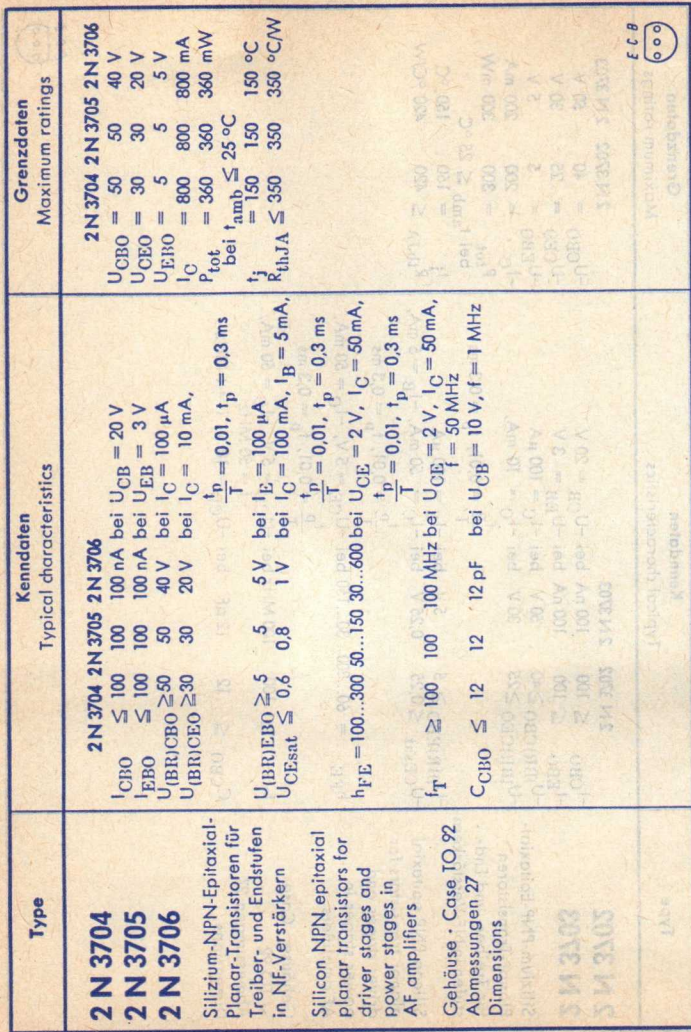 Type
2 N 3704
2 N 3705
2 N 3706
Silizium-NPN-Epitaxial-
Planar-Transistoren für
Treiber- und Endstufen
in NF-Verstärkern
Silicon NPN epitaxial
planar transistors for
driver stages and
power stages in
AF amplifiers
Gehäuse · Case TO 92
Abmessungen 27
Dimensions
Kenndaten
Typical characteristics
2 N 3704 2 N 3705 2 N 3706
ICBO ≦ 100 100 100 nA bei UCB = 20 V
IEBO ≦ 100 100 100 nA bei UEB = 3 V
U(BR)CBO ≧ 50 50 40 V bei IC = 100 µA
U(BR)CEO ≧ 30 30 20 V bei IC = 10 mA,
tp/T = 0,01, tp = 0,3 ms
U(BR)EBO ≧ 5 5 5 V bei IE = 100 µA
UCEsat ≦ 0,6 0,8 1 V bei IC = 100 mA, IB = 5 mA,
tp/T = 0,01, tp = 0,3 ms
hFE = 100...300 50...150 30...600 bei UCE = 2 V, IC = 50 mA,
tp/T = 0,01, tp = 0,3 ms
fT ≧ 100 100 100 MHz bei UCE = 2 V, IC = 50 mA,
f = 50 MHz
CCBO ≦ 12 12 12 pF bei UCB = 10 V, f = 1 MHz
Grenzdaten
Maximum ratings
2 N 3704 2 N 3705 2 N 3706
UCBO = 50 50 40 V
UCEO = 30 30 20 V
UEBO = 5 5 5 V
IC = 800 800 800 mA
Ptot = 360 360 360 mW
bei tamb ≦ 25 °C
tj = 150 150 150 °C
RthJA ≦ 350 350 350 °C/W
E C B